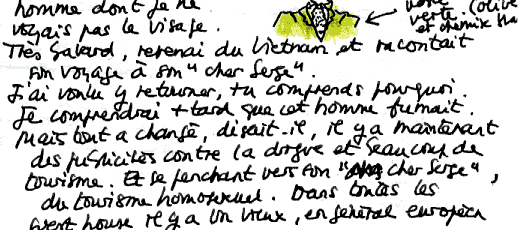 homme dont je ne
voyais pas le visage.
verte. (olive
et chemise
Très bavard, revenai du Vietnam et racontait
son voyage à son "cher Serge".
J'ai voulu y retourner, tu comprends pourquoi.
Je comprendrai + tard que cet homme fumait.
Mais tout a changé, disait-il, il y a maintenant
des publicités contre la drogue et beaucoup de
tourisme. Et se penchant vers son "cher Serge",
du tourisme homosexuel. Dans toutes les
guest house il y a un vieux, en général européen